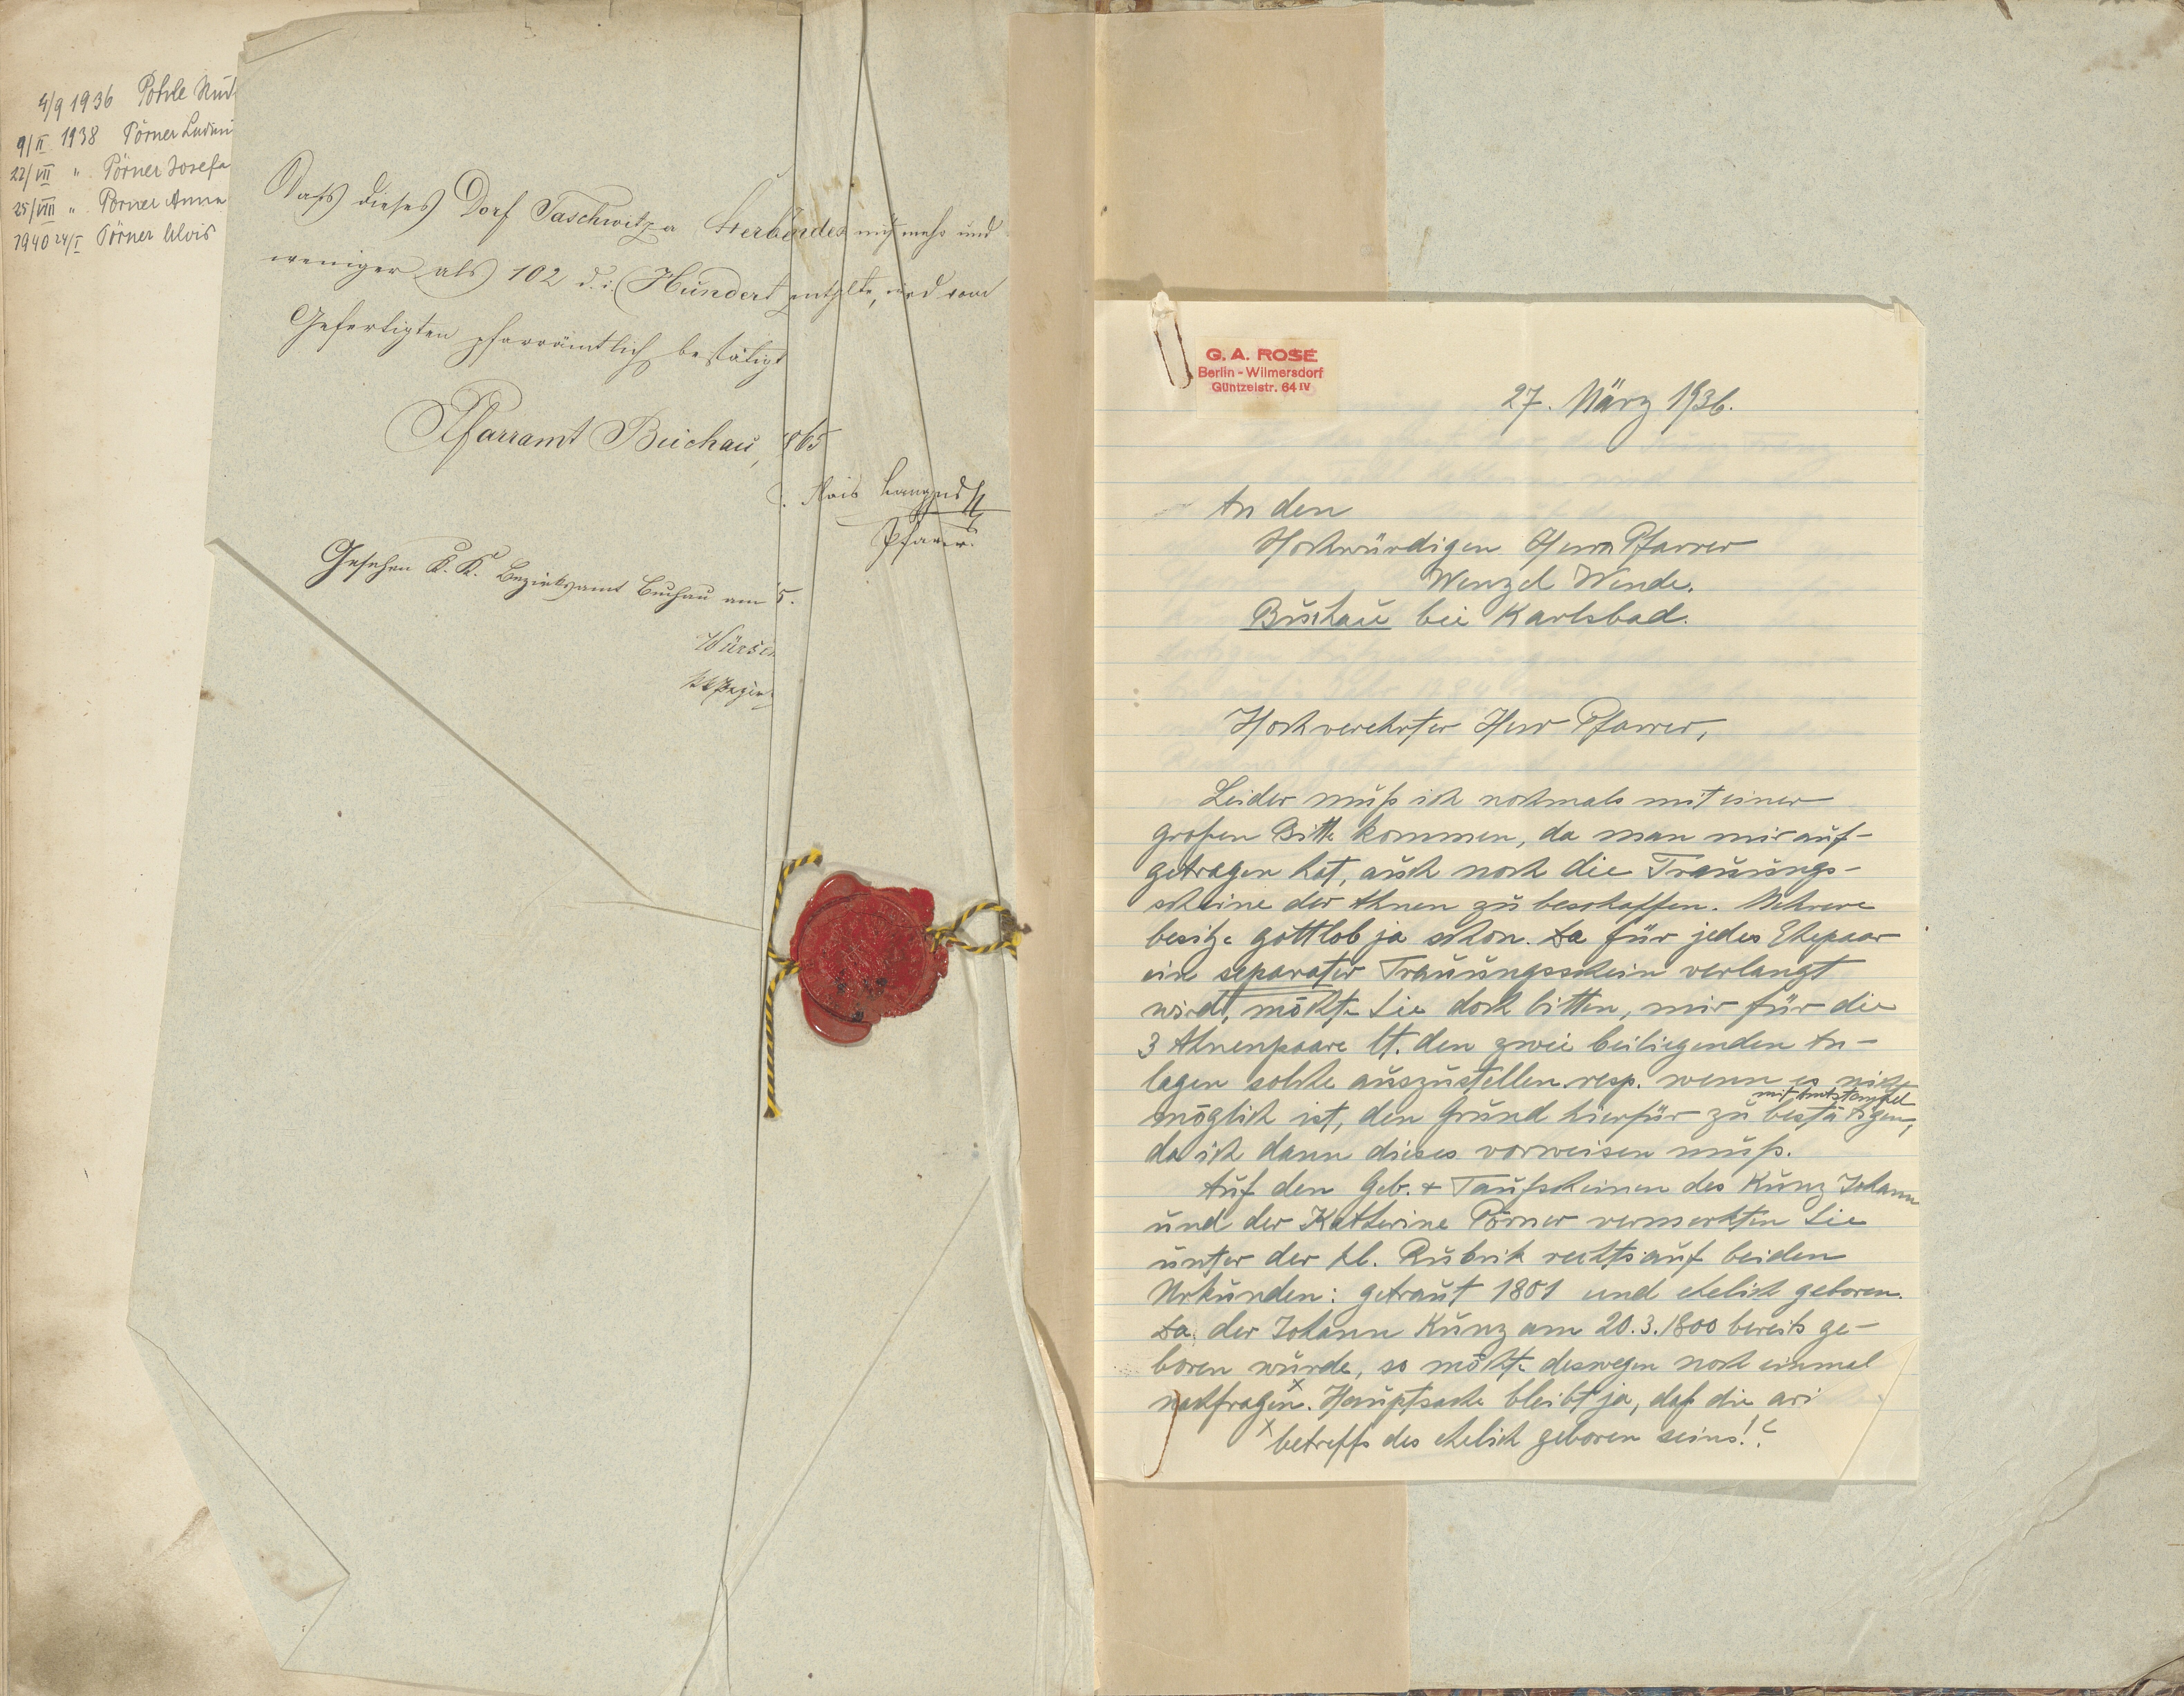 4/9 1936 Pohle
9/II 1938 Pörner
22/VII " Pörner Josefa
25/VIII " Pörner Anna
1940 24/I Pörner Alois
Daß dieses Dorf Taschwitzer Sterb nicht mehr und
weniger als 102 d. i. Hundert enthalte, wird vom
Gefertigten pfarrämtlich bestätigt
Pfarramt Buchau, 865
Pfarrer.
Gesehen K. K. Bezirksamt Buchau am 5.
G. A. ROSE
Berlin - Wilmersdorf
Güntzelstr. 64 IV
27. März 1936.
An den
Hochwürdigen Herrn Pfarrer
Wenzel Wende.
Buchau bei Karlsbad.
Hochverehrter Herr Pfarrer,
Leider muß ich nochmals mit einer
großen Bitte kommen, da man mir auf-
getragen hat, auch noch die Trauungs-
scheine der Ahnen zu beschaffen. Mehrere
besitze gottlob ja schon. Da für jedes Ehepaar
ein separater Trauungsschein verlangt
wird, möchte Sie doch bitten, mir für die
3 Ahnenpaare lt. den zwei beiliegenden An-
lagen solche auszustellen resp. wenn es nicht
mit Amtstempel
möglich ist, den Grund hierfür zu bestätigen,
da ich dann dieses vorweisen muß.
Auf den Geb. & Taufscheinen des Kunz Johann
und der Katherine Pörner vermerkten Sie
unter der kl. Rubrik rechts auf beiden
Urkunden: getraut 1801 und ehelich geboren.
Da der Johann Kunz am 20.3.1800 bereits ge-
boren wurde, so möchte deswegen noch einmal
nachfragen x. Hauptsache bleibt ja, daß die ari
x betreffs des ehelich geboren seins!?